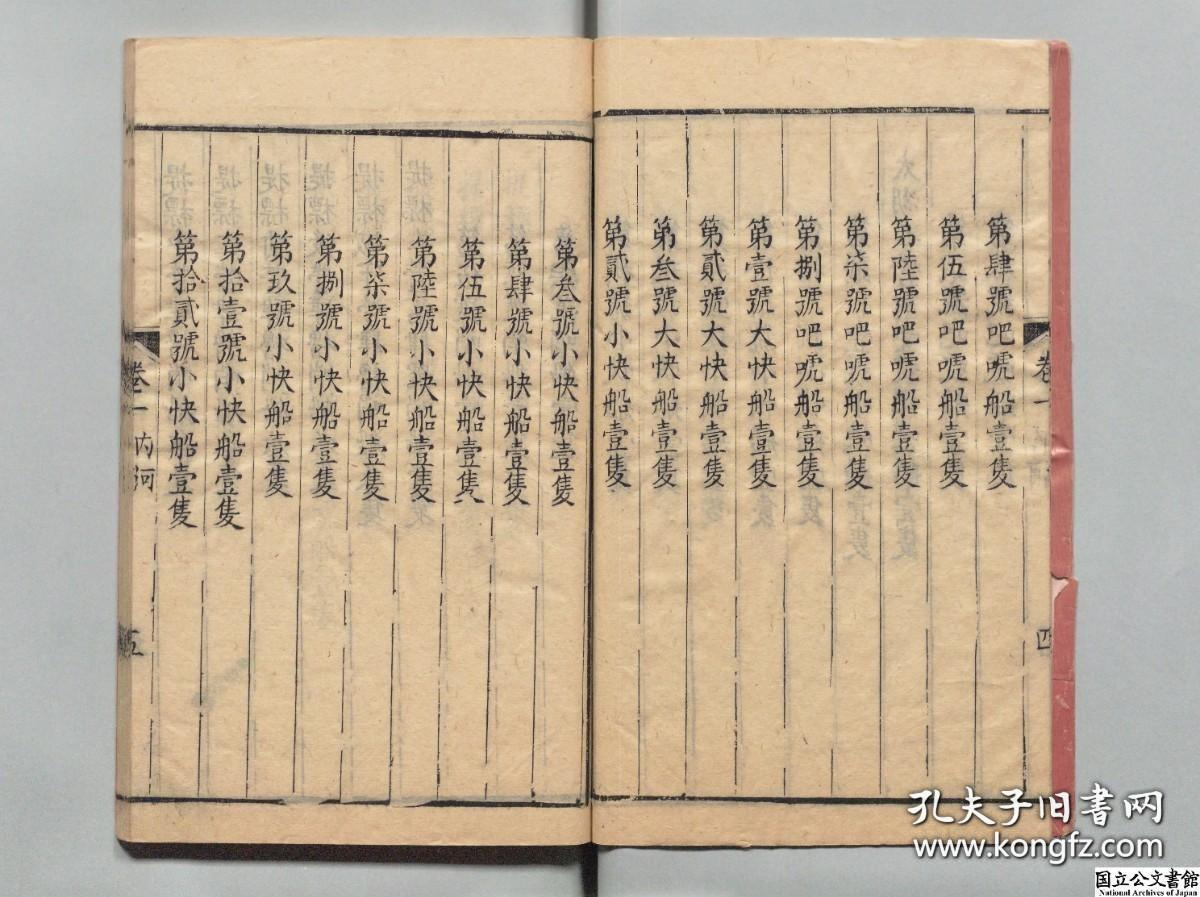 第肆號吧唬船壹隻
第伍號吧唬船壹隻
第陸號吧唬船壹隻
第柒號吧唬船壹隻
第捌號吧唬船壹隻
第壹號大快船壹隻
第貳號大快船壹隻
第叁號大快船壹隻
第貳號小快船壹隻
卷一
四
第叁號小快船壹隻
第肆號小快船壹隻
第伍號小快船壹隻
第陸號小快船壹隻
第柒號小快船壹隻
第捌號小快船壹隻
第玖號小快船壹隻
第拾壹號小快船壹隻
第拾貳號小快船壹隻
卷一 內河
五
孔夫子旧书网
www.kongfz.com
国立公文書館
National Archives of Japan